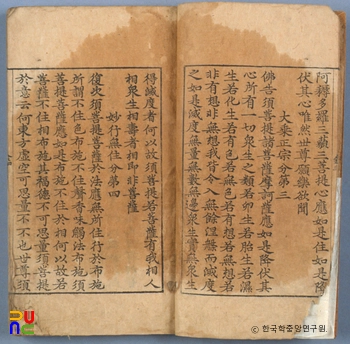 阿耨多羅三藐三菩提心應如是住如是降
伏其心唯然世尊願樂欲聞
大乘正宗分第三
佛告須菩提諸菩薩摩訶薩應如是降伏其
心所有一切衆生之類若卵生若胎生若濕
生若化生若有色若無色若有想若無想若
非有想非無想我皆令入無餘涅槃而滅度
之如是滅度無量無數無邊衆生實無衆生
得滅度者何以故須菩提若菩薩有我相人
相衆生相壽者相卽非菩薩
妙行無住分第四
復次須菩提菩薩於法應無所住行於布施
所謂不住色布施不住聲香味觸法布施須
菩提菩薩應如是布施不住於相何以故若
菩薩不住相布施其福德不可思量須菩提
於意云何東方虛空可思量不不也世尊須
ⓒ 한국학중앙연구원